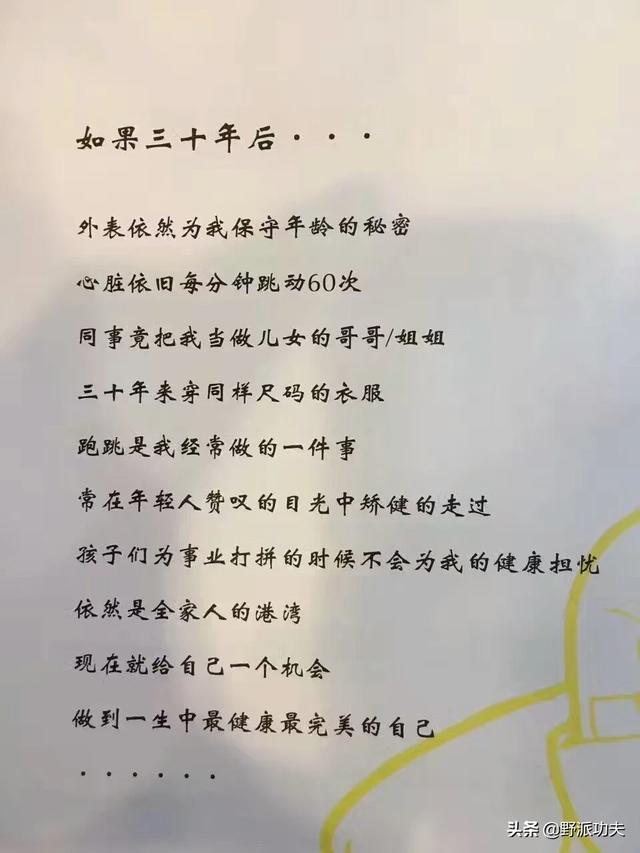 如果三十年后···
外表依然为我保守年龄的秘密
心脏依旧每分钟跳动60次
同事竟把我当做儿女的哥哥/姐姐
三十年来穿同样尺码的衣服
跑跳是我经常做的一件事
常在年轻人赞叹的目光中矫健的走过
孩子们为事业打拼的时候不会为我的健康担忧
依然是全家人的港湾
现在就给自己一个机会
做到一生中最健康最完美的自己
······
头条 @野派功夫